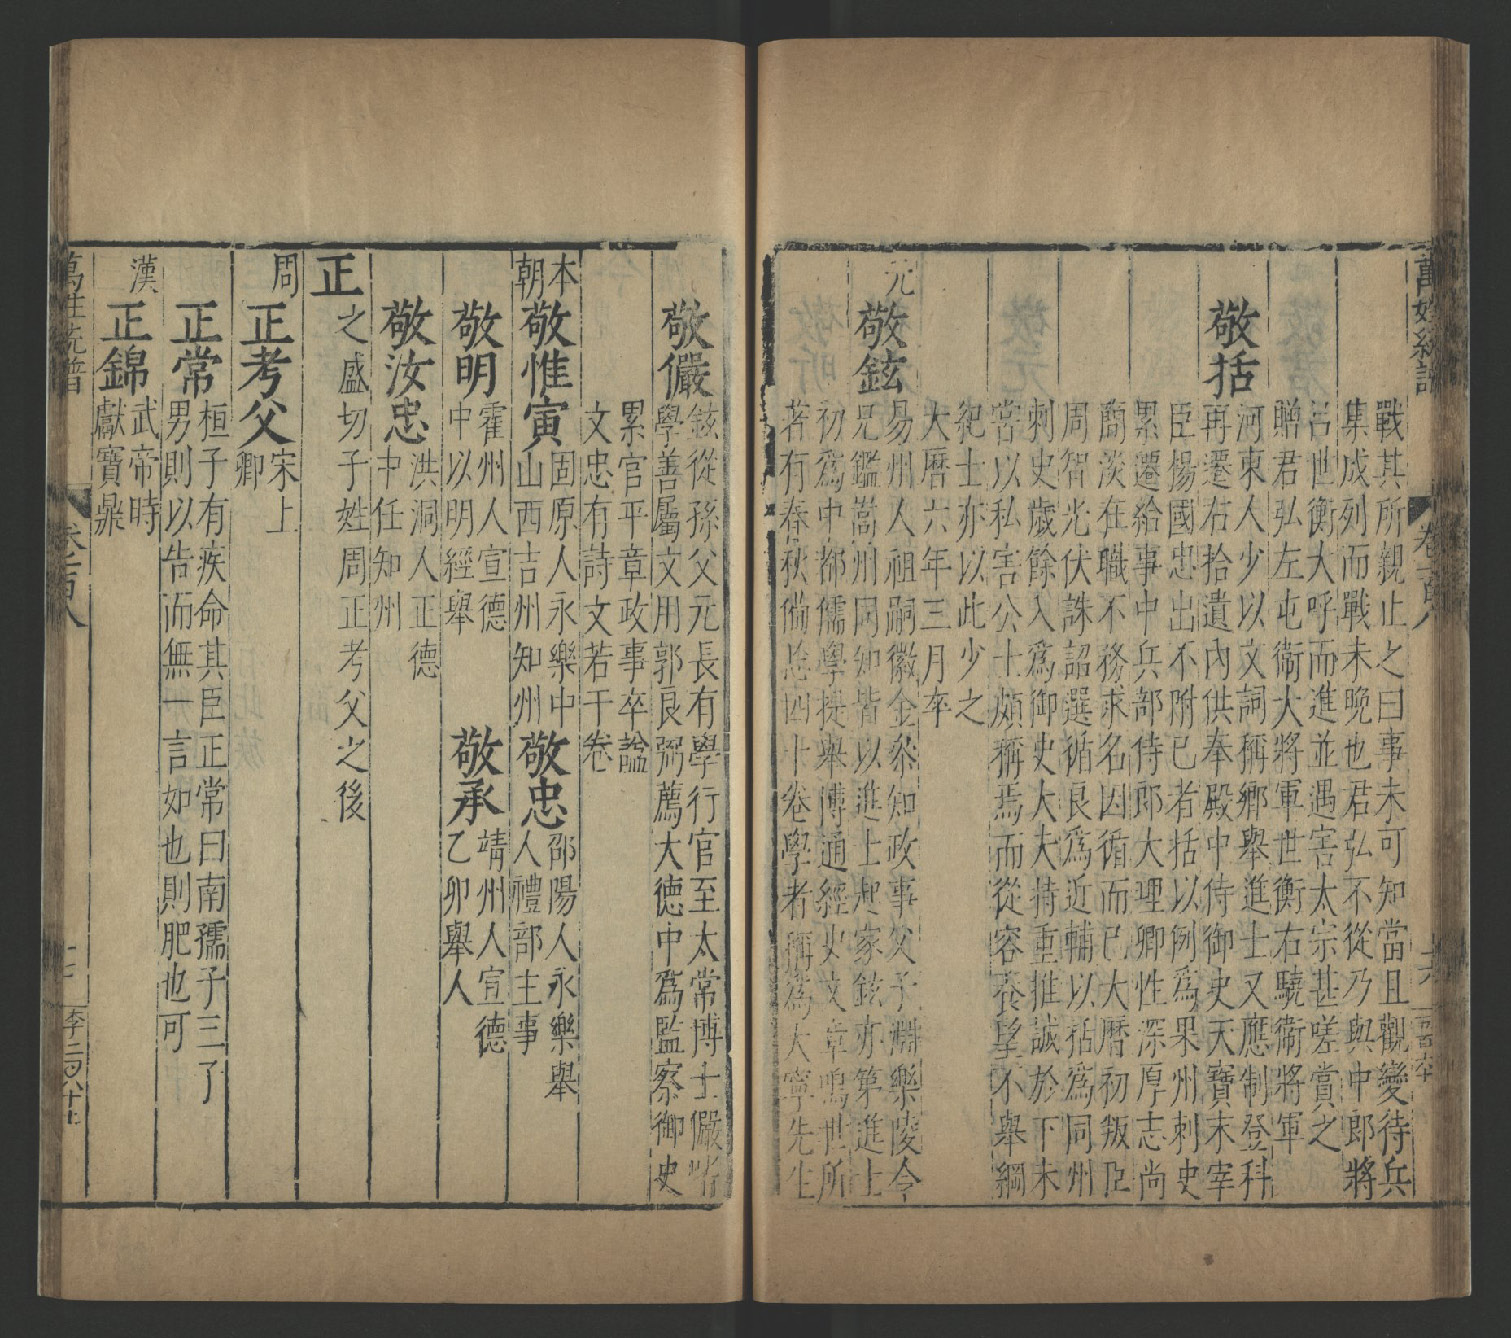 戰其所親止之曰事未可知當且觀變待兵
集成列而戰未晚也君弘不從乃與中郎將
呂世衡大呼而進並遇害太宗甚嗟賞之
贈君弘左屯衞大將軍世衡右驍衞將軍
敬括
河東人少以文詞稱鄉舉進士又應制登科
再遷右拾遺內供奉殿中侍御史天寶末宰
臣楊國忠出不附已者括以例爲果州刺史
累遷給事中兵部侍郎大理卿性深厚志尚
簡淡在職不務求名因循而已大曆初叛臣
周智光伏誅詔選循良爲近輔以括爲同州
刺史歲餘入爲御史大夫持重推誠於下未
嘗以私害公士頗稱焉而從容養望不舉綱
紀士亦以此少之
大曆六年三月卒
元
敬鉉
易州人祖嗣徽金參知政事父子淵樂陵令
兄鑑嵩州同知皆以進士起家鉉亦第進士
初爲中都儒學提舉博通經史文章鳴世所
若有春秋備忘四十卷學者稱爲大寧先生
敬儼
鉉從孫父元長有學行官至太常博士儼
學善屬文用郭良弼薦大德中爲監察御史
累官平章政事卒諡
文忠有詩文若干卷
本朝
敬惟寅
固原人永樂中
山西吉州知州
敬忠
邵陽人永樂舉
人禮部主事
敬明
霍州人宣德
中以明經舉
敬承
靖州人宣德
乙卯舉人
敬汝忠
洪洞人正德
中任知州
正
之盛切子姓周正考父之後
周
正考父
宋上
卿
正常
桓子有疾命其臣正常曰南孺子三了
男則以告而無一言如也則肥也可
漢
正錦
武帝時
獻寶鼎
萬姓統譜